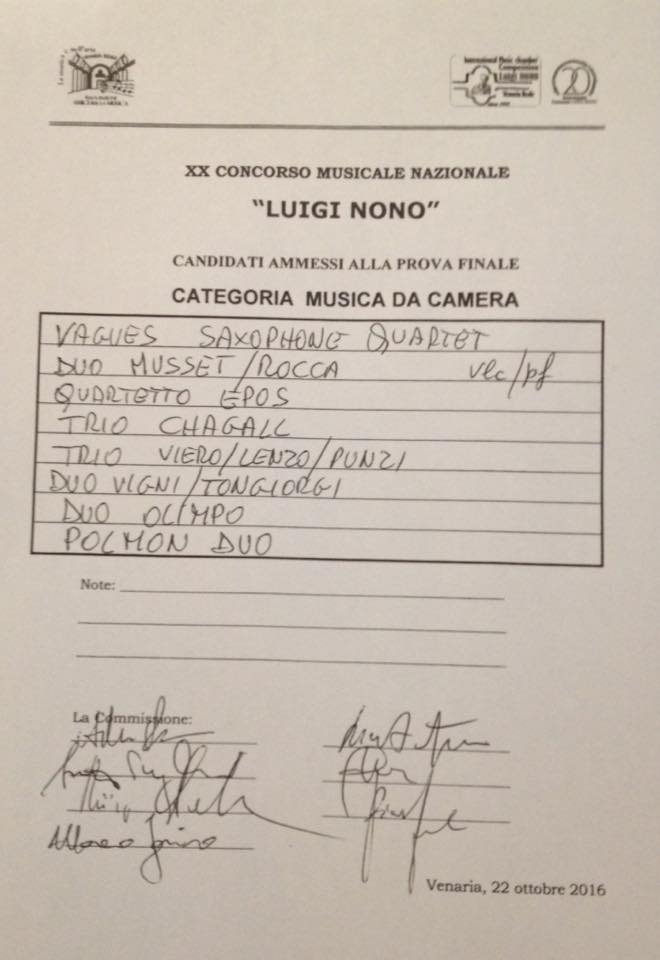 International Music chamber
Competition
LUIGI NONO
Venaria Reale
XX CONCORSO MUSICALE NAZIONALE
“LUIGI NONO”
CANDIDATI AMMESSI ALLA PROVA FINALE
CATEGORIA MUSICA DA CAMERA
VAGUES SAXOPHONE QUARTET
DUO MUSSET/ROCCA vlc/pf
QUARTETTO EPOS
TRIO CHAGALL
TRIO VIERO/LENZO/PUNZI
DUO VIGNI/TONGIORGI
DUO OLIMPO
POLMON DUO
Note:
La Commissione:
Venaria, 22 ottobre 2016